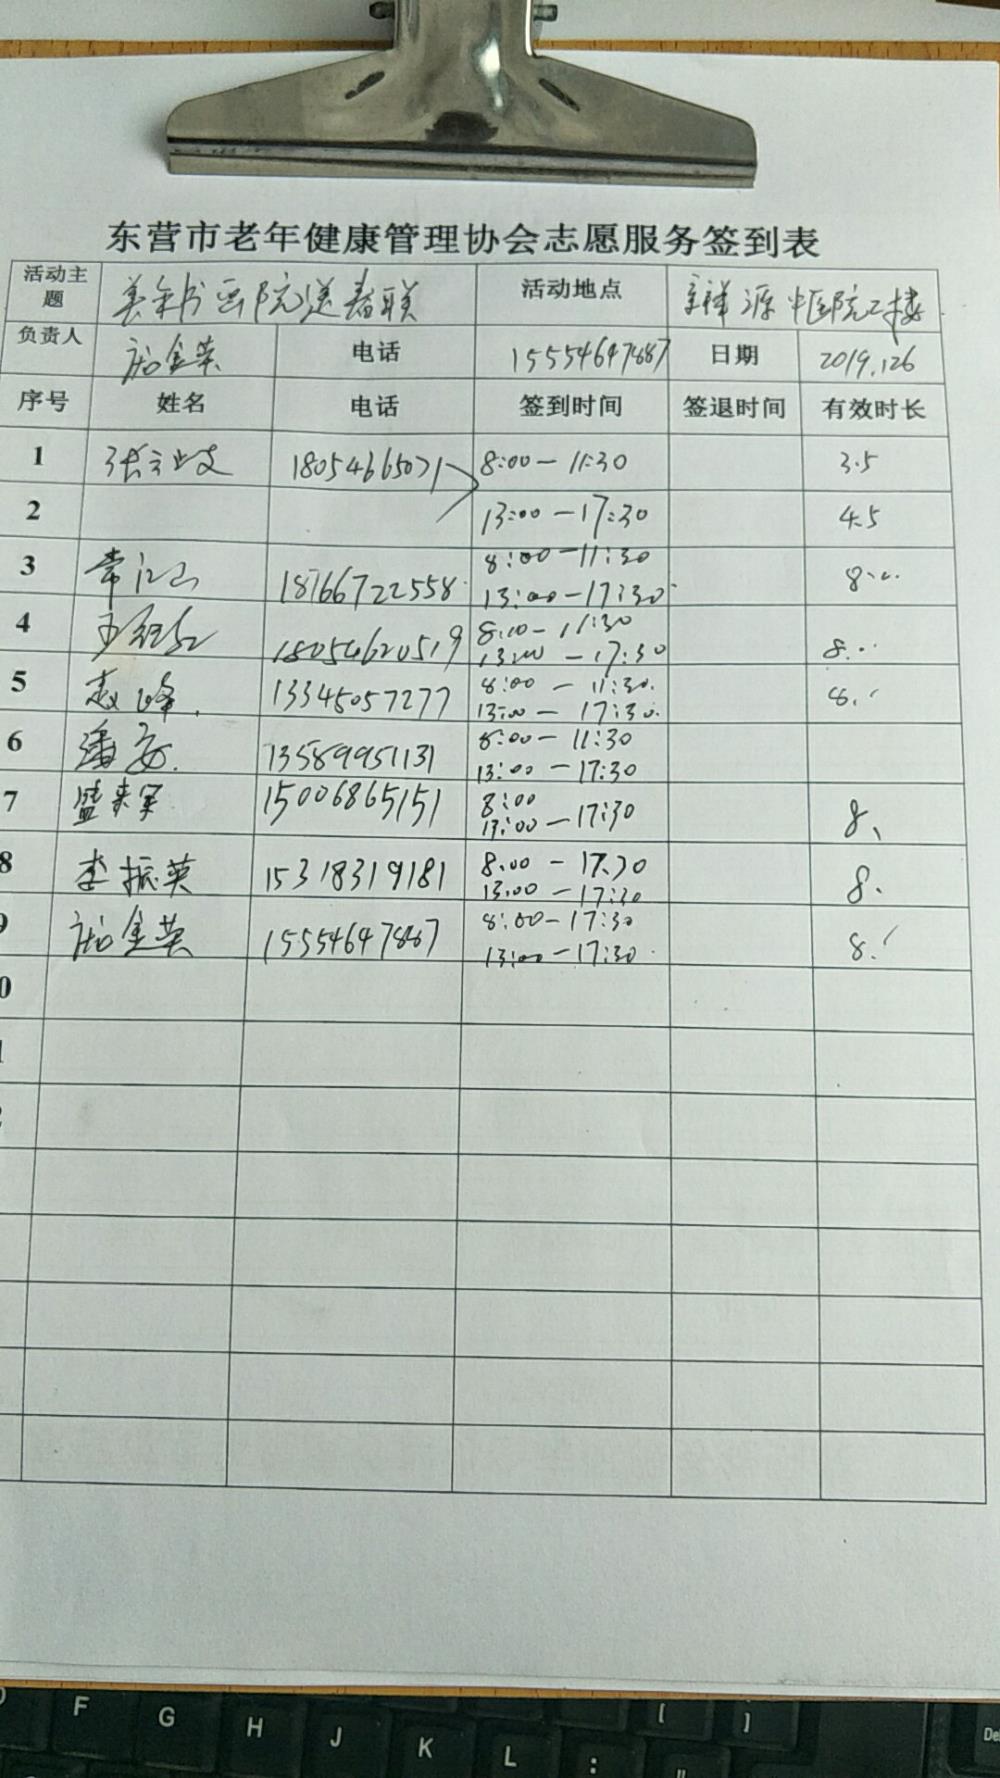 东营市老年健康管理协会志愿服务签到表
活动主题 美年书画院送春联 活动地点 祥源中医院二楼
负责人 金英 电话 15554647887 日期 2019.1.26
序号 姓名 电话 签到时间 签退时间 有效时长
1 张 18054665071 8:00-11:30 3.5
2 13:00-17:30 4.5
3 常江山 18766722558 8:00-11:30 8.
13:00-17:30
4 王 18054620519 8:00-11:30 8.
13:00-17:30
5 峰 13345057277 8:00-11:30 8.
13:00-17:30
6 潘 13589951131 8:00-11:30
13:00-17:30
7 盛来军 15006865151 8:00 8、
13:00-17:30
8 李振英 15318319181 8:00-17:30 8.
13:00-17:30
9 金英 15554647887 8:00-17:30 8.
13:00-17:30
0
1
2
F G H J K L : " [ ] De